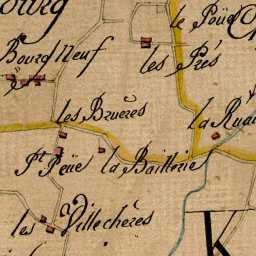 ourg
le
Bourg Neuf
les Prés
les Bruères
la
la Baillerie
les Villechères
K